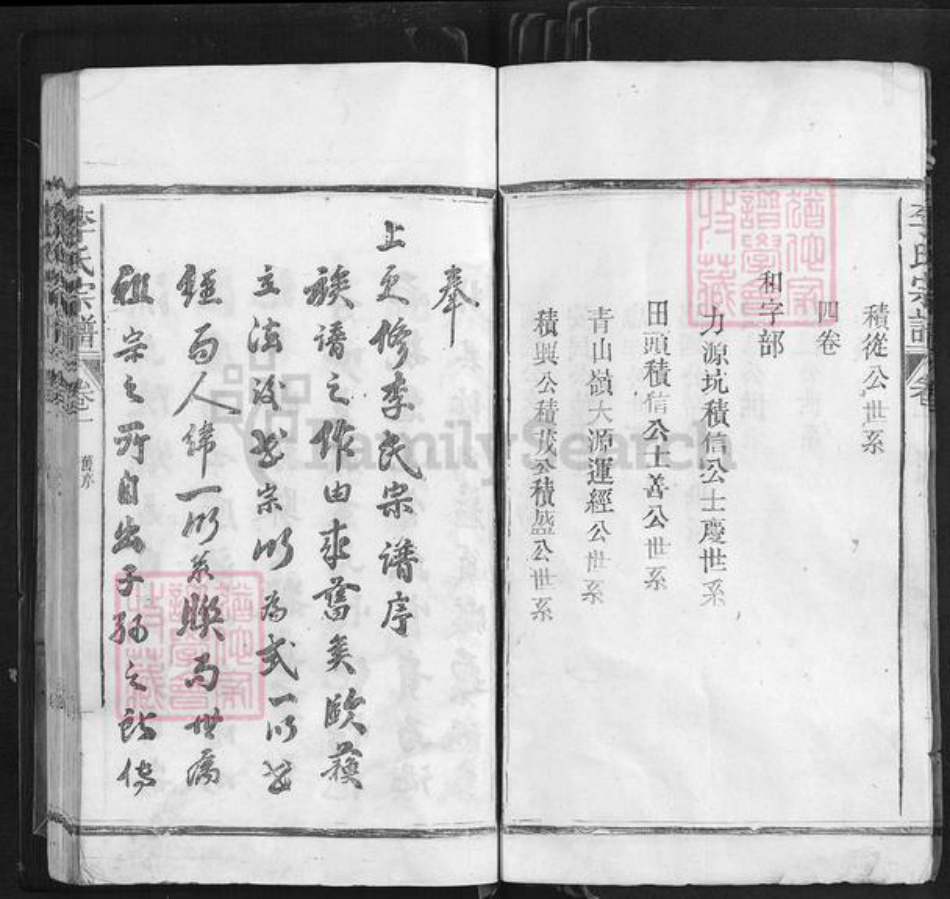 李氏宗譜
卷
積從公世系
四卷
和字部
力源坑積信公士慶世系
田頭積信公士善公世系
青山嶺大源運經公世系
積興公積茂公積盛公世系
奉
上更修李氏宗譜序
族譜之作由來舊矣歐蘇
立法後世宗以為式一以世
經而人緯一以系聯而世痛
祖宗之所自出子孫之
李氏宗譜
卷一
舊序
FamilySearch